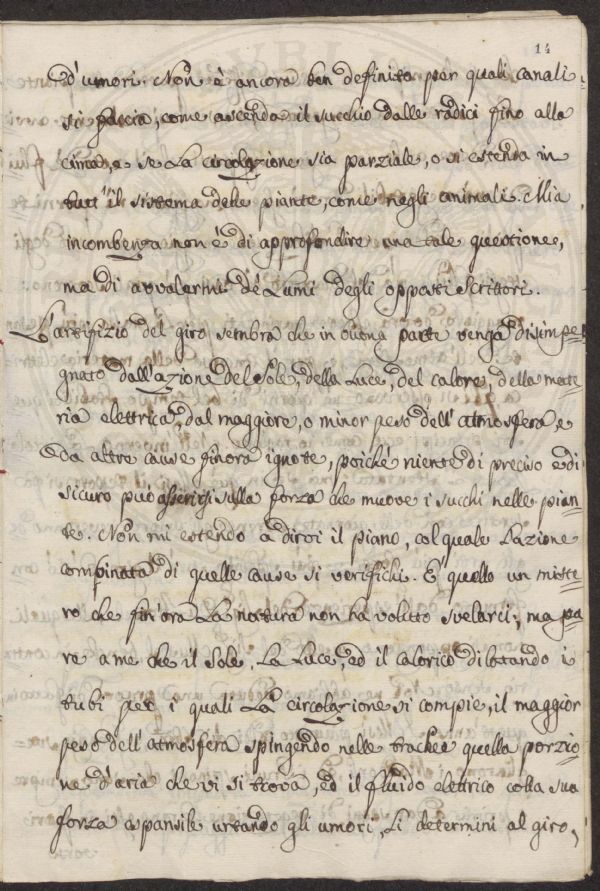 14
d'umori. Non è ancora ben definita per quali canali
si faccia, come ascenda il succhio dalle radici fino alla
cima, e se La circolazione sia parziale, o si estenda in
tutt'il sistema delle piante, come negli animali. Mia
incombenza non è di approfondire una tale questione,
ma di avvalermi de' Lumi degli opposti Scrittori.
L'artifizio del giro sembra che in buona parte venga disimpe=
gnato dall'azione del Sole, della Luce, del calore, della mate=
ria elettrica, dal maggiore, o minor peso dell'atmosfera, e
da altre cause finora ignote, poiché niente di preciso e di
sicuro può asserirsi sulla forza che muove i succhi nelle pian=
te. Non mi estendo a dirvi il piano, col quale L'azione
combinata di quelle cause si verifichi. È quello un miste=
ro che fin'ora La natura non ha voluto svelarci; ma pa=
re a me che il Sole, La Luce, ed il calorico dilatando i
tubi per i quali La circolazione si compie, il maggior
peso dell'atmosfera spingendo nelle trachee quella porzio=
ne d'aria che vi si trova, ed il fluido elettrico colla sua
forza espansile urtando gli umori, Li determini al giro,